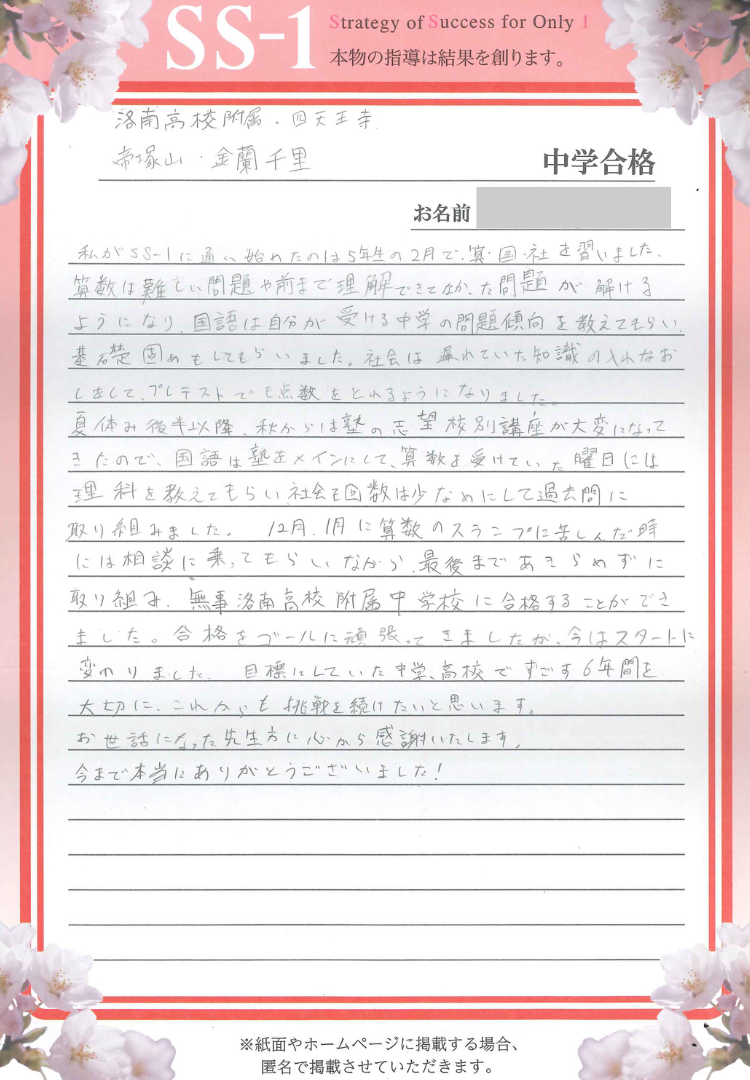 SS-1
Strategy of Success for Only 1
本物の指導は結果を創ります。
洛南高校附属・四天王寺
帝塚山・金蘭千里
中学合格
お名前
私がSS-1に通い始めたのは5年生の2月で、算・国・社を習いました。
算数は難しい問題や前まで理解できてなかった問題が解ける
ようになり、国語は自分が受ける中学の問題傾向を教えてもらい、
基礎固めもしてもらいました。社会は遅れていた知識の入れなお
しをして、プレテストでも点数をとれるようになりました。
夏休み後半以降、秋からは塾の志望校別講座が大変になって
きたので、国語は塾をメインにして、算数を受けていた曜日には
理科を教えてもらい、社会も回数は少なめにして過去問に
取り組みました。 12月、1月に算数のスランプに苦しんだ時
には相談に乗ってもらいながら、最後まであきらめずに
取り組み、無事洛南高校附属中学校に合格することができ
ました。合格をゴールに頑張ってきましたが、今はスタートに
変わりました。 目標にしていた中学、高校ですごす6年間を
大切に、これからも挑戦を続けたいと思います。
お世話になった先生方に心から感謝いたします。
今まで本当にありがとうございました!
※紙面やホームページに掲載する場合、
匿名で掲載させていただきます。